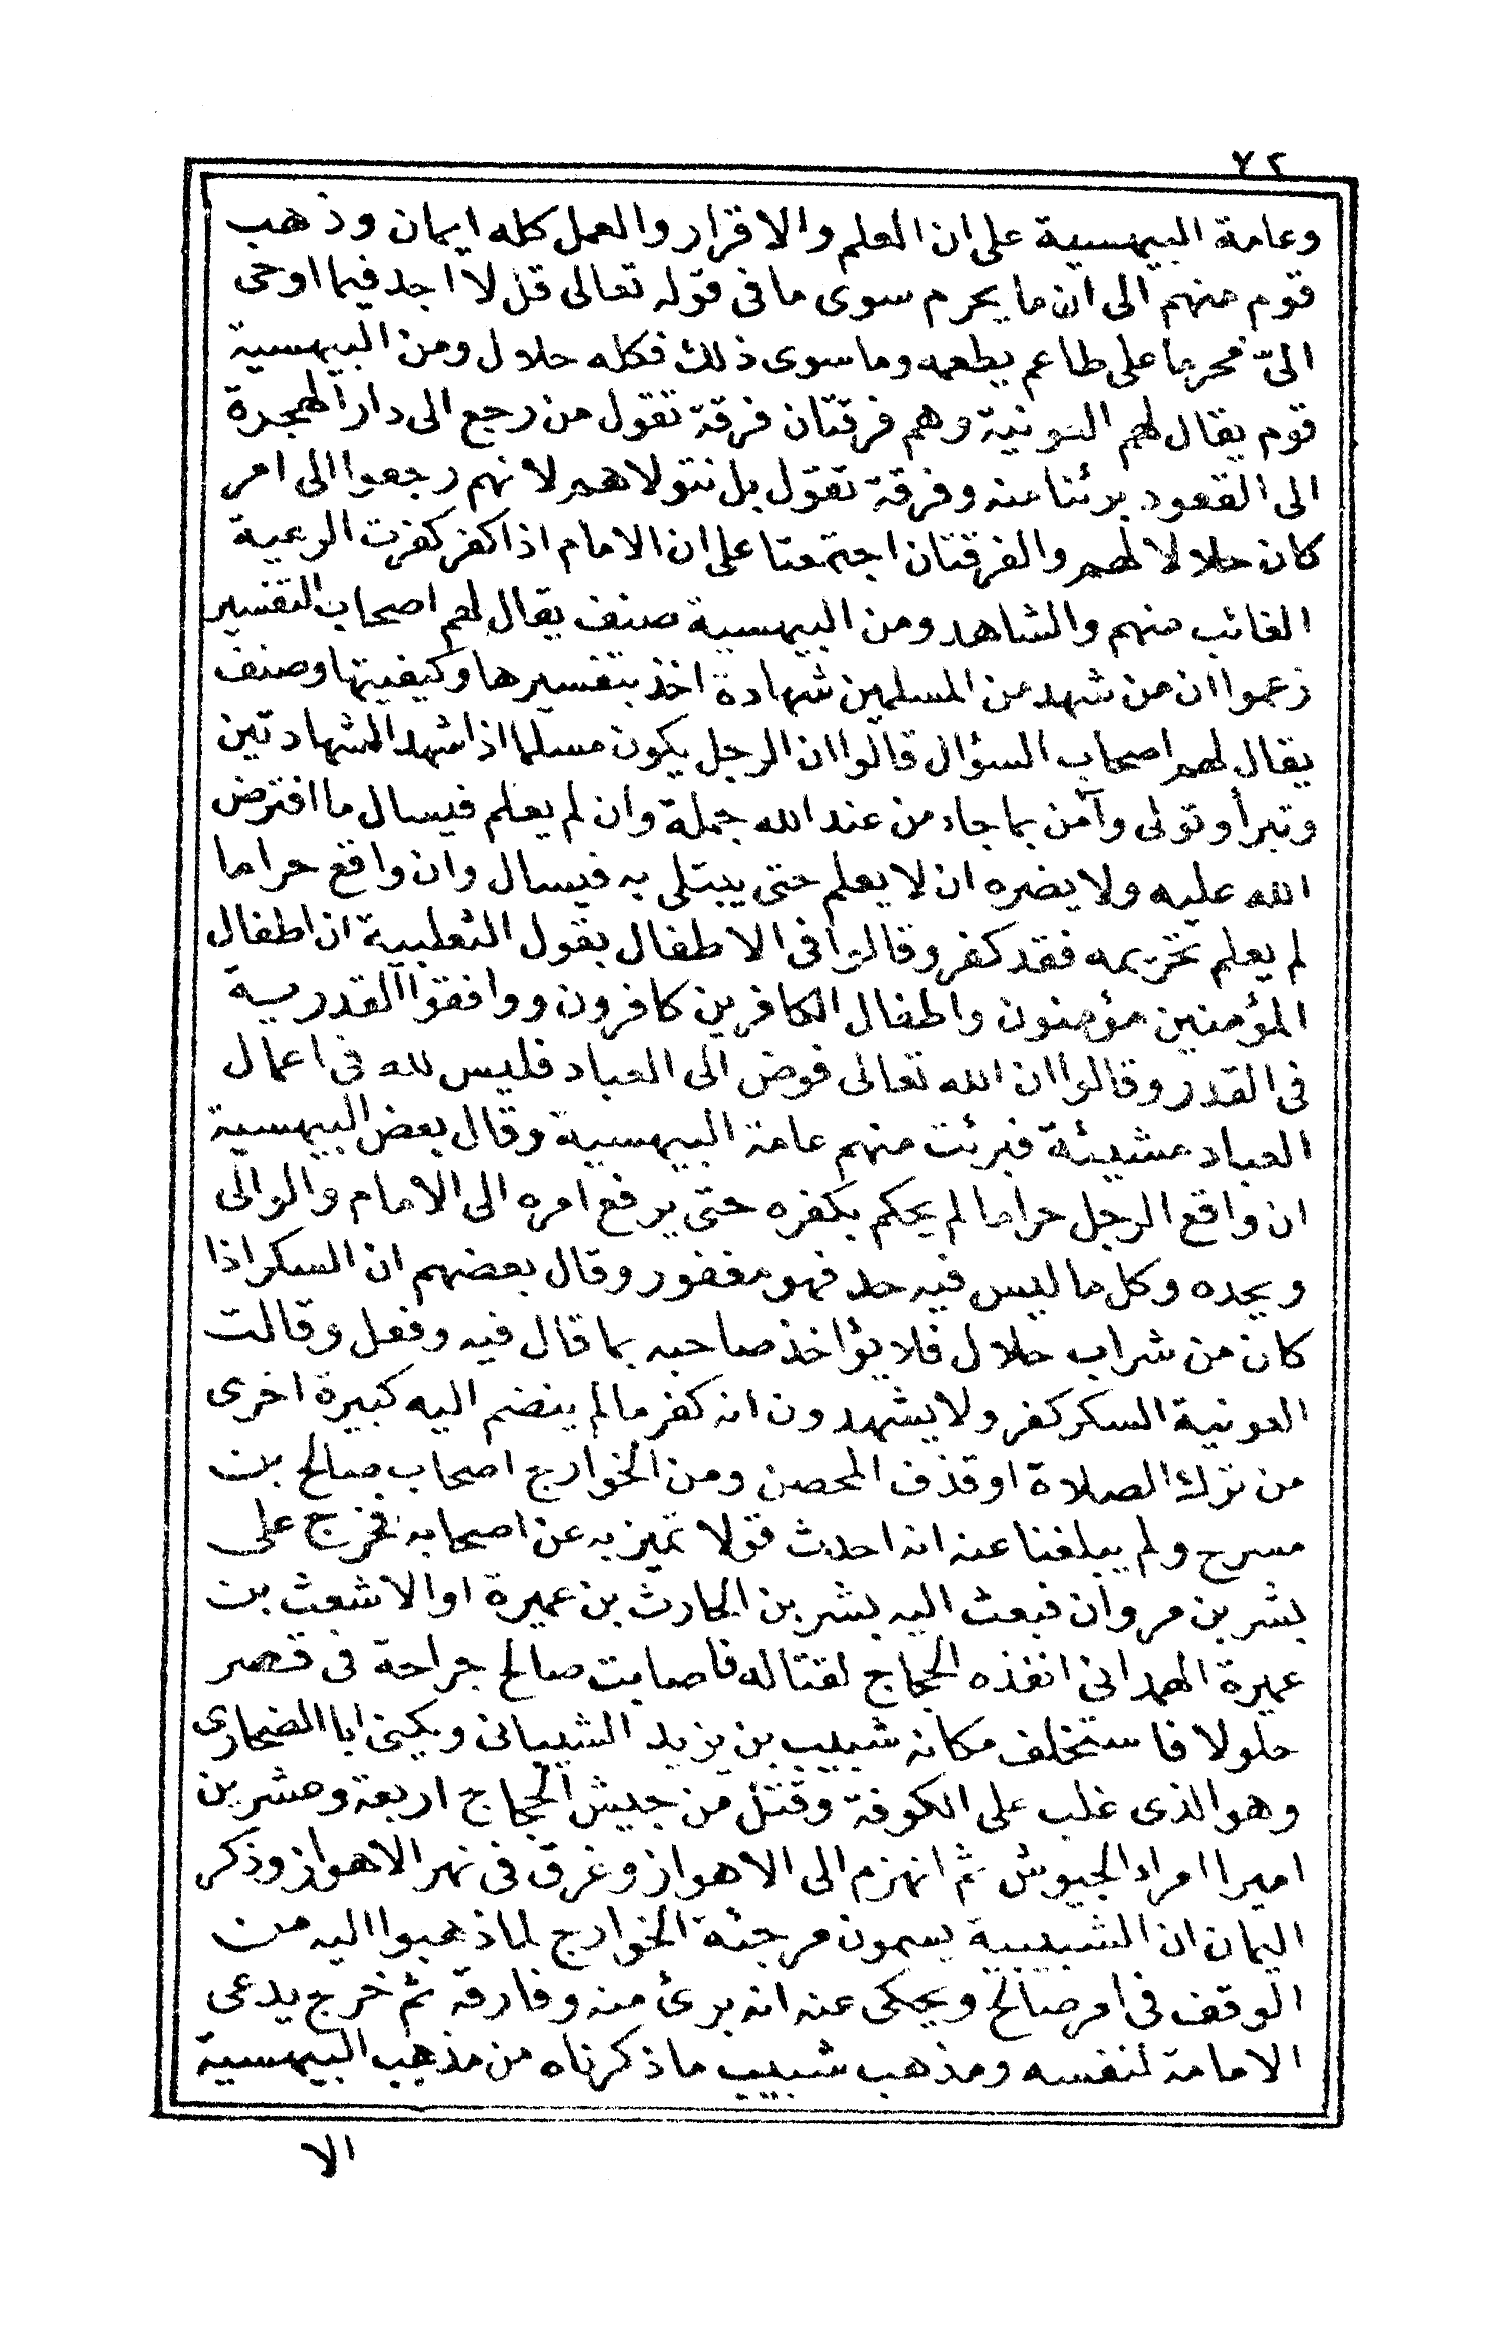 ٧٢
وعامة البيهسية على ان العلم والاقرار والعمل كله ايمان وذهب
قوم منهم الى ان ما يحرم سوى ما فى قوله تعالى قل لا اجد فيما اوحى
الىّ محرما على طاعم يطعمه وما سوى ذلك فكله حلال ومن البيهسية
قوم يقال لهم العونية وهم فرقتان فرقة تقول من رجع الى دار الهجرة
الى القعود برئنا منه وفرقة تقول بل نتولاهم لانهم رجعوا الى امر
كان حلالا لهم والفرقتان اجتمعتا على ان الامام اذا كفر كفرت الرعية
الغائب منهم والشاهد ومن البيهسية صنف يقال لهم اصحاب التفسير
زعموا ان من شهد من المسلمين شهادة اخذ بتفسيرها وكيفيتها وصنف
يقال لهم اصحاب السؤال قالوا ان الرجل يكون مسلما اذا شهد الشهادتين
وتبرأ وتولى وآمن بما جاء من عند الله جملة وان لم يعلم فيسال ما افترض
الله عليه ولا يضره ان لا يعلم حتى يبتلى به فيسال وان واقع حراما
لم يعلم تحريمه فقد كفر وقالوا فى الاطفال بقول الثعلبية ان اطفال
المؤمنين مؤمنون واطفال الكافرين كافرون ووافقوا القدرية
فى القدر وقالوا ان الله تعالى فوض الى العباد فليس لله فى اعمال
العباد مشيئة فبرئت منهم عامة البيهسية وقال بعض البيهسية
ان واقع الرجل حراما لم يحكم بكفره حتى يرفع امره الى الامام والوالى
ويحده وكل ما ليس فيه حد فهو مغفور وقال بعضهم ان السكر اذا
كان من شراب حلال فلا يؤاخذ صاحبه بما قال فيه وفعل وقالت
العونية السكر كفر ولا يشهدون انه كفر ما لم ينضم اليه كبيرة اخرى
من ترك الصلاة او قذف المحصن ومن الخوارج اصحاب صالح بن
مسرح ولم يبلغنا عنه انه احدث قولا تميز به عن اصحابه فخرج على
بشر بن مروان فبعث اليه بشر بن الحارث بن عميرة او الاشعث بن
عميرة الهمدانى انفذه الحجاج لقتاله فاصابت صالح جراحة فى قصر
حلولا فاستخلف مكانه شبيب بن يزيد الشيبانى ويكنى ابا الضحارى
وهو الذى غلب على الكوفة وقتل من جيش الحجاج اربعة وعشرين
اميرا امراء الجيوش ثم انهزم الى الاهواز وغرق فى نهر الاهواز وذكر
اليمان ان الشبيبية يسمون مرجئة الخوارج لما ذهبوا اليه من
الوقف فى امر صالح ويحكى عنه انه برئ منه وفارقه ثم خرج يدعى
الامامة لنفسه ومذهب شبيب ما ذكرناه من مذهب البيهسية
الا